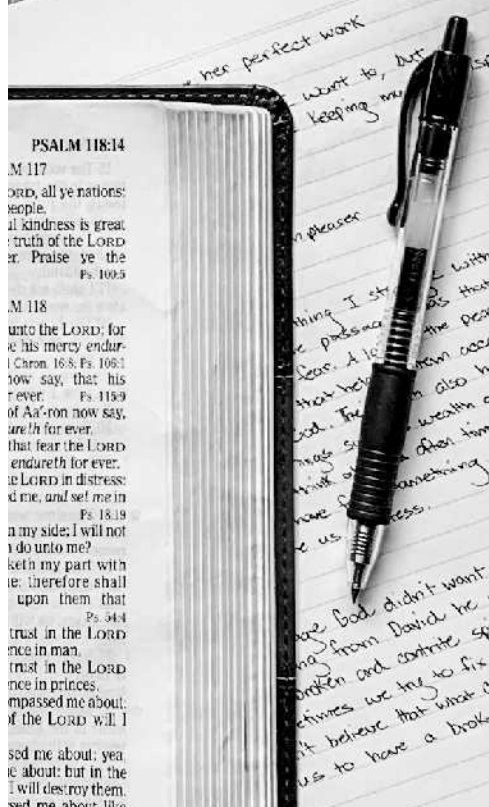 PSALM 118:14
LM 117
ORD, all ye nations:
people.
ul kindness is great
e truth of the LORD
er. Praise ye the
Ps. 100:5
LM 118
unto the LORD; for
e his mercy endur-
1 Chron. 16:8; Ps. 106:1
now say, that his
r ever. Ps. 115:9
of Aa´-ron now say,
ureth for ever.
that fear the LORD
endureth for ever.
e LORD in distress:
d me, and set me in
Ps. 18:19
n my side; I will not
n do unto me?
keth my part with
e: therefore shall
upon them that
Ps. 54:4
trust in the LORD
ence in man.
trust in the LORD
ence in princes.
ompassed me about:
of the LORD will I
sed me about; yea,
e about: but in the
I will destroy them.
sed me about like
her perfect work
want to, but
keeping
pleaser
thing I with
passa as that
fear. A the
that from
God. The also h
wealth a
often tim
have something
e us
God didn't want
ng from David he
broken and contrite
etimes we try to fix
't believe that what
us to have a brok